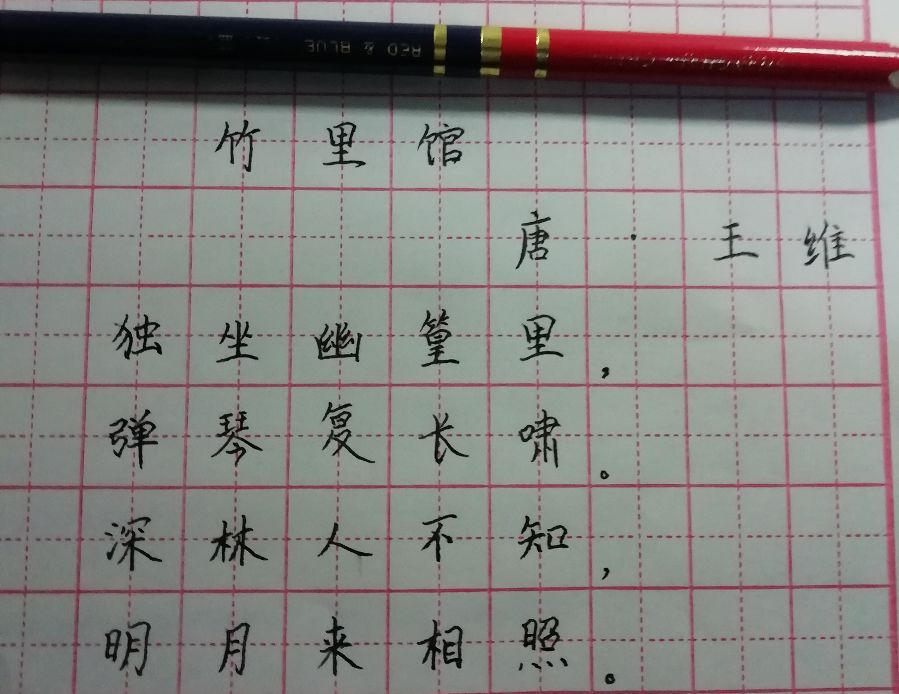 RED & BLUE
竹里馆
唐·王维
独坐幽篁里，
弹琴复长啸。
深林人不知，
明月来相照。